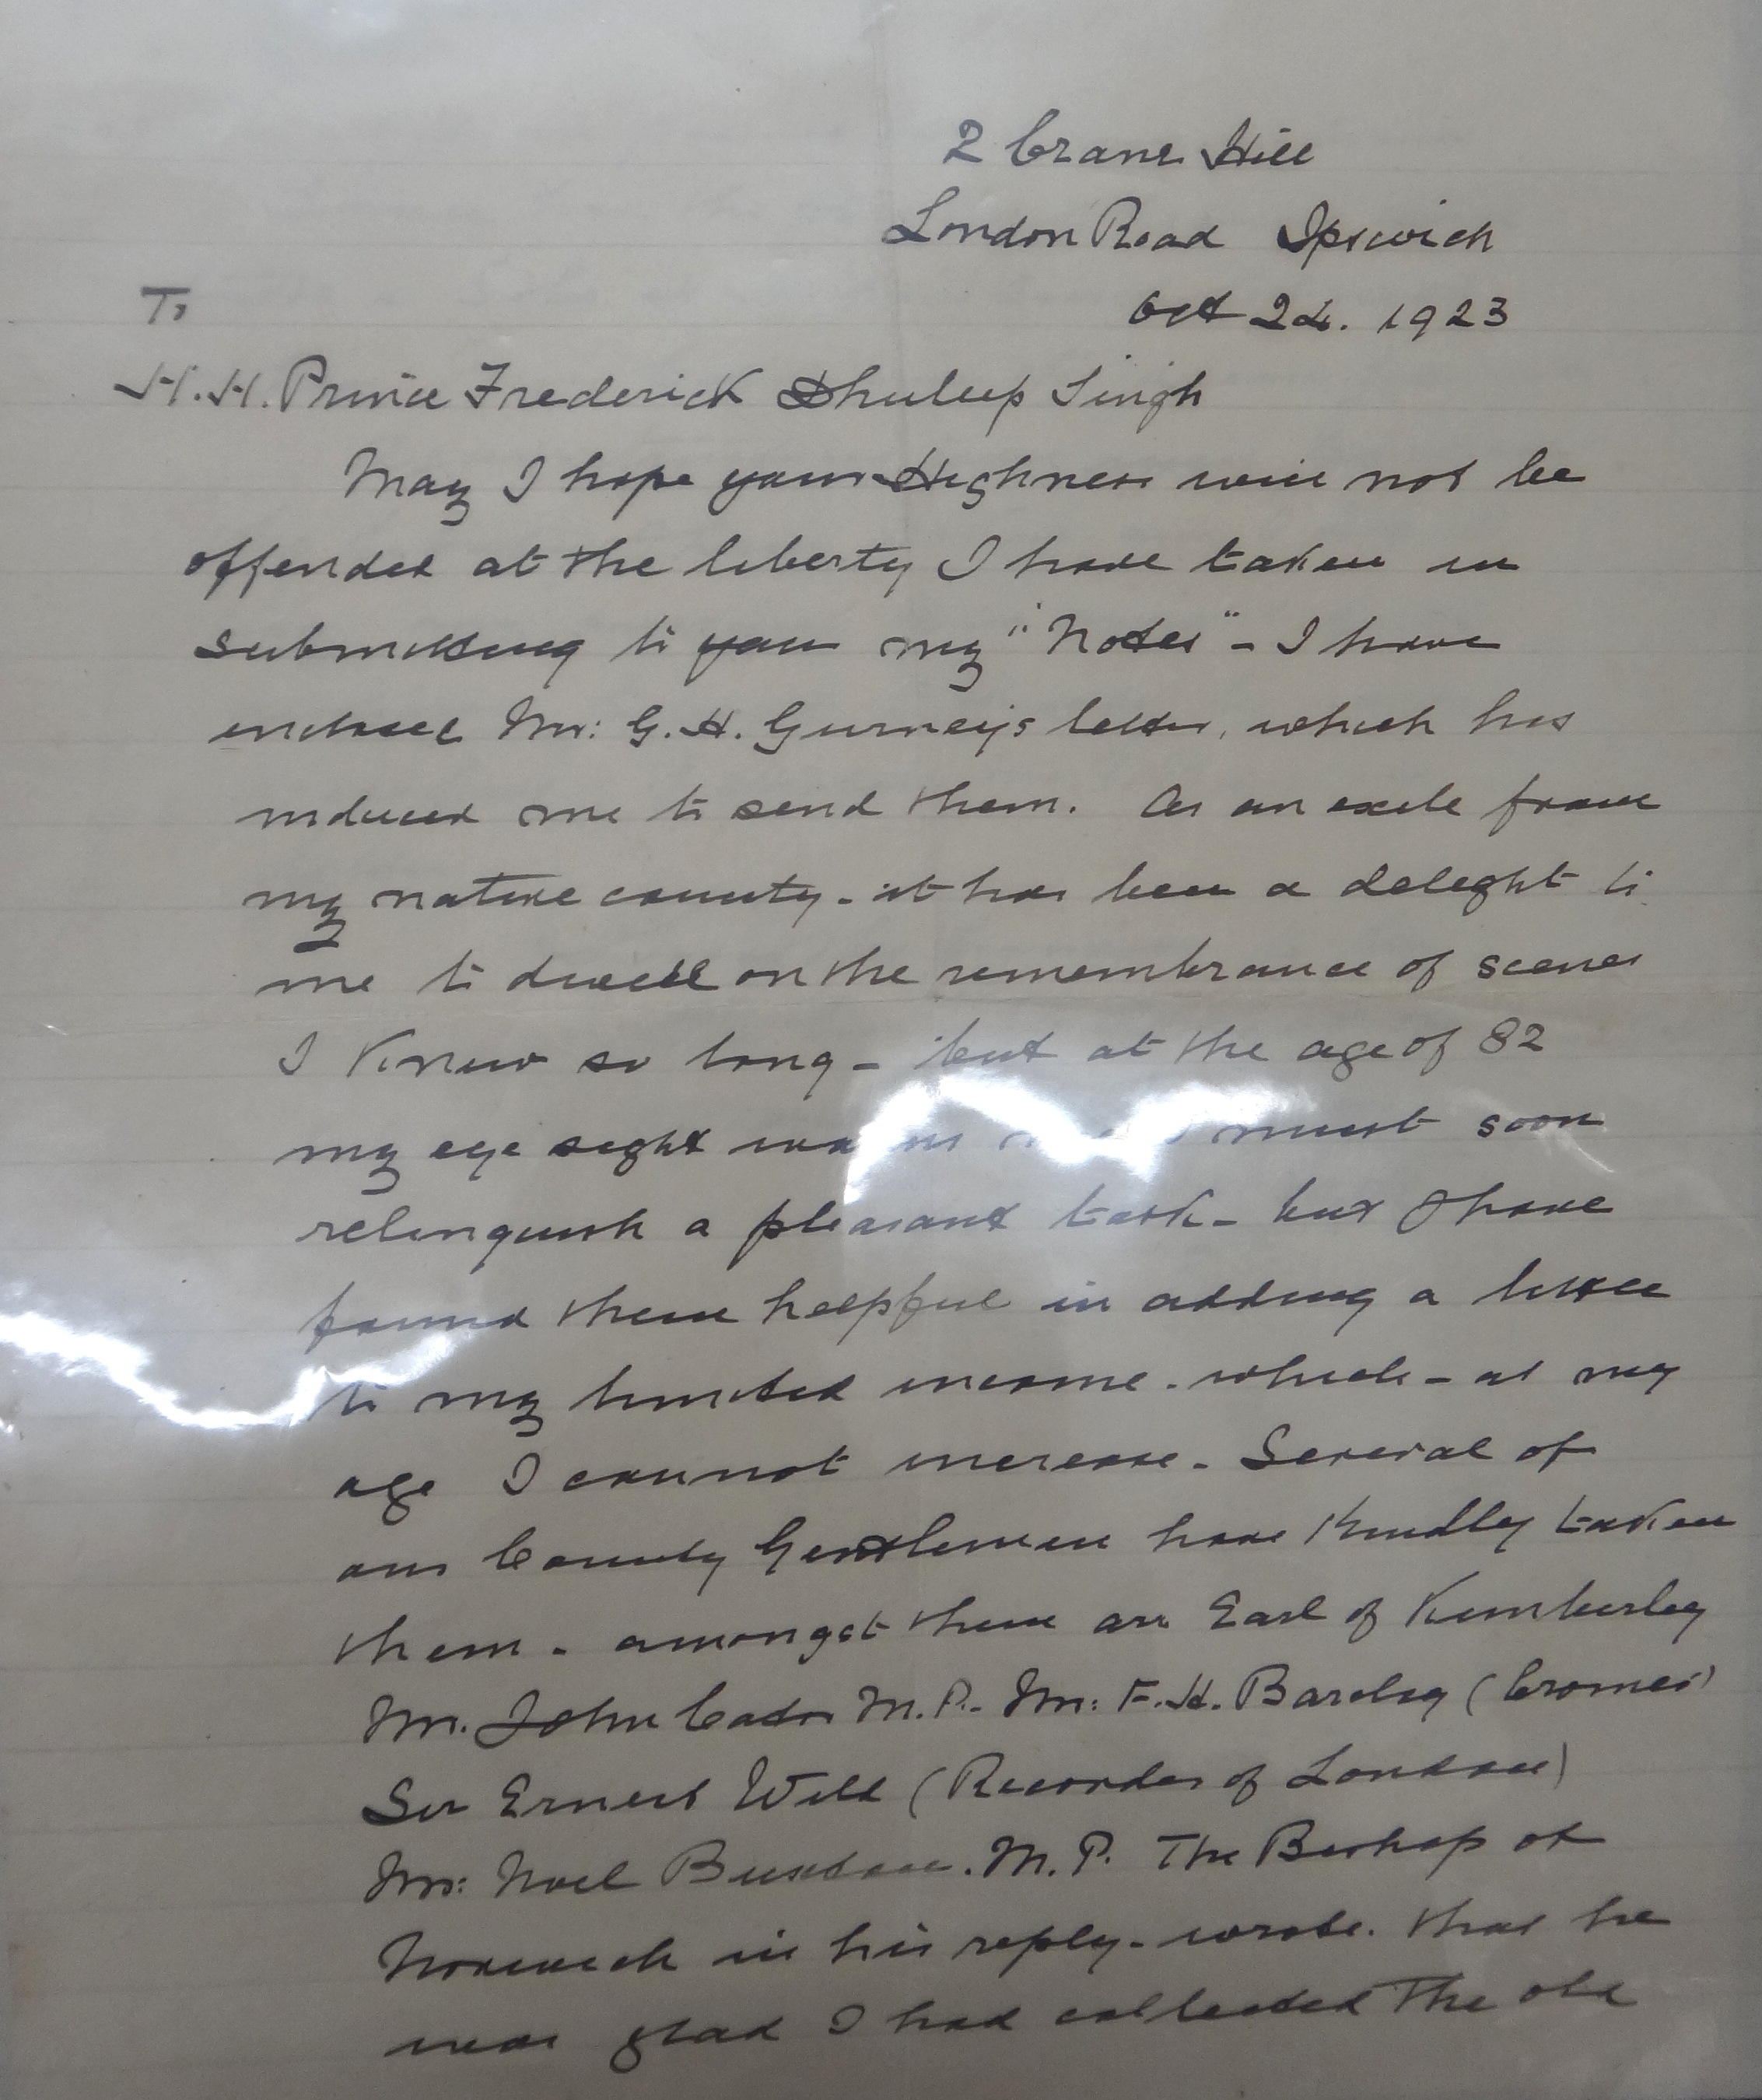 2 Crane Hill
London Road Ipswich
Oct 24. 1923
To
H.H. Prince Frederick Dhuleep Singh
May I hope your Highness will not be
offended at the liberty I have taken in
submitting to you my "Notes" - I have
enclosed Mr: G.H. Gurney's letter, which has
induced me to send them. As an exile from
my native county - it has been a delight to
me to dwell on the remembrance of scenes
I knew so long - but at the age of 82
my eye sight must soon
relinquish a pleasant task - but I have
found them helpful in adding a little
to my limited income - which - at my
age I cannot increase - Several of
our County Gentlemen have kindly taken
them - amongst them are Earl of Kimberley
Mr. John Cator M.P. - Mr: F.H. Barclay (Cromer)
Sir Ernest Wild (Recorder of London)
Mr: Noel Buxton. M.P. The Bishop of
Norwich in his reply - wrote. that he
was glad I had collected the old